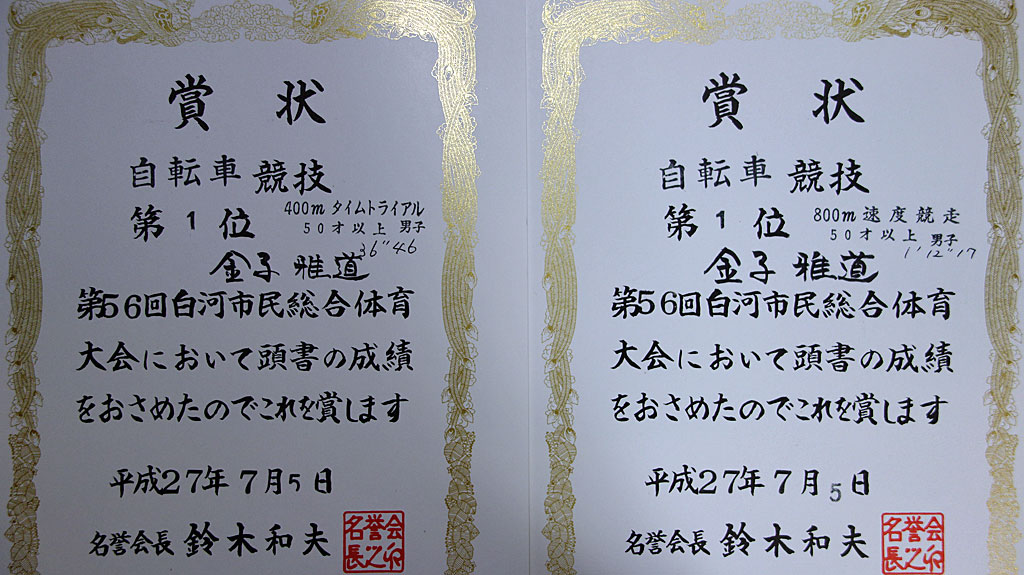 賞状
自転車 競技
第1位 400mタイムトライアル
50才以上 男子
36"46
金子雅道
第56回白河市民総合体育
大会において頭書の成績
をおさめたのでこれを賞します
平成27年7月5日
名誉会長 鈴木和夫
名誉会
長之印
賞状
自転車 競技
第1位 800m速度競走
50才以上 男子
1'12"17
金子雅道
第56回白河市民総合体育
大会において頭書の成績
をおさめたのでこれを賞します
平成27年7月5日
名誉会長 鈴木和夫
名誉会
長之印